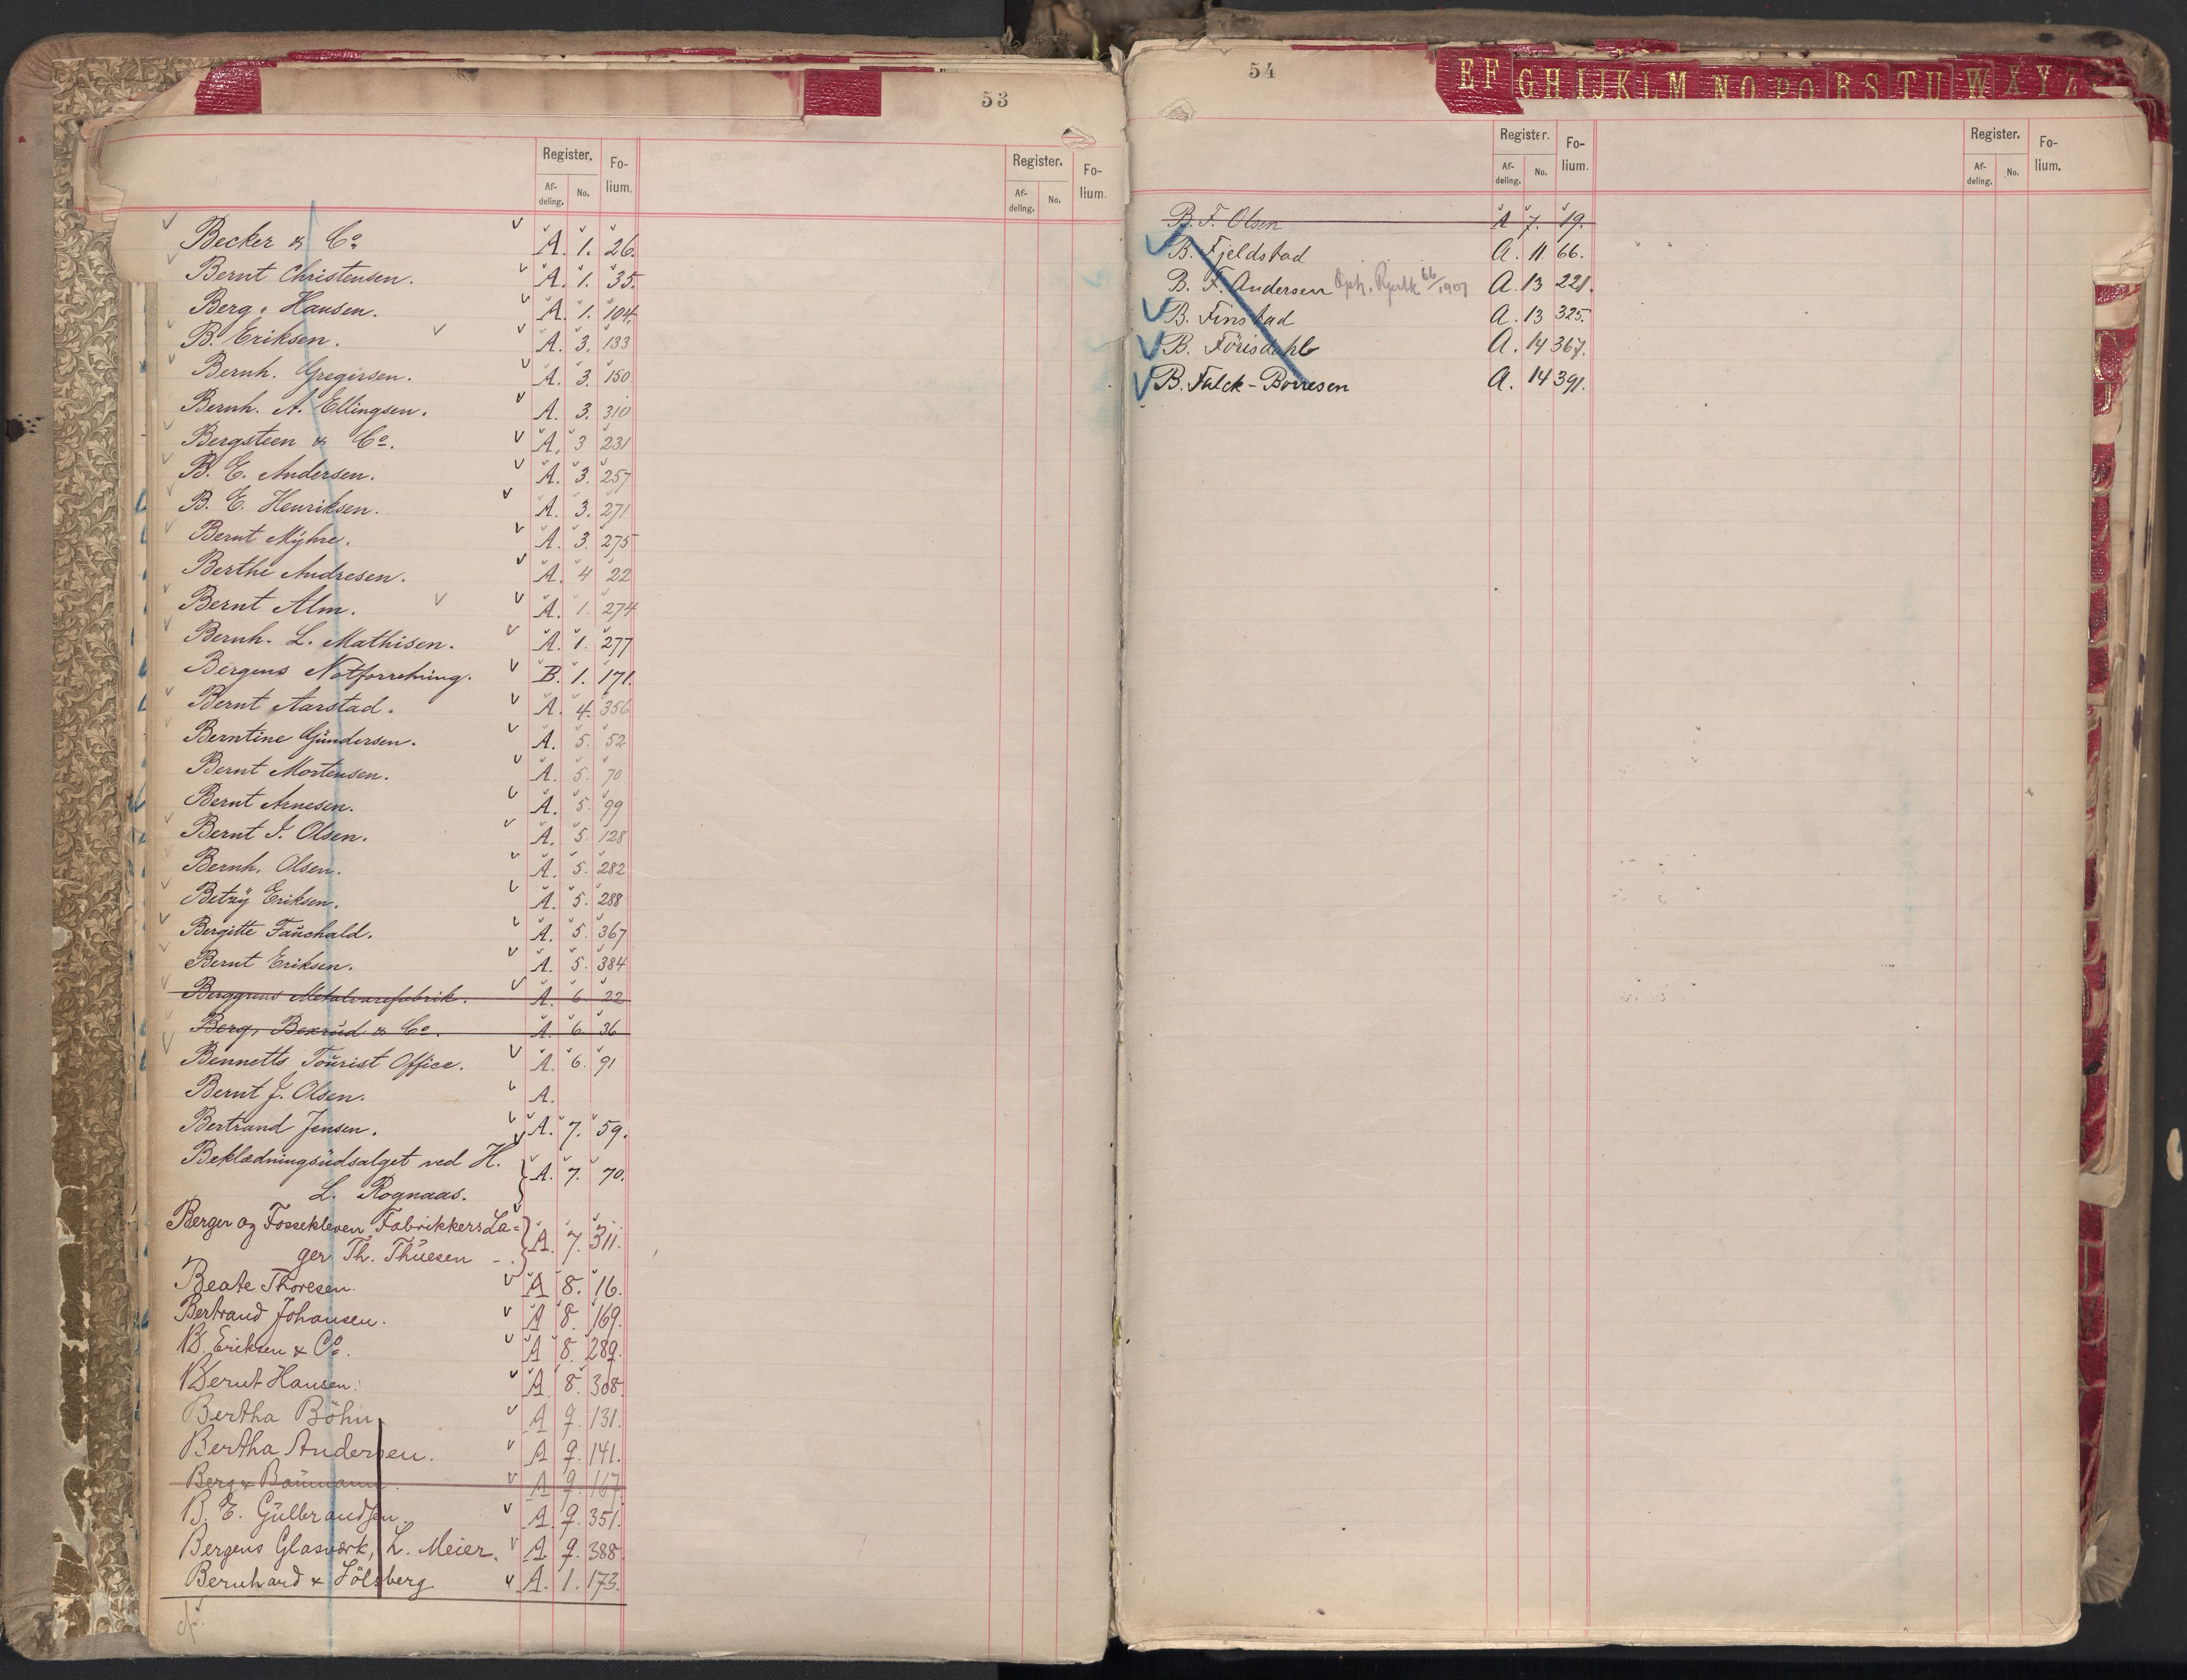 53
Register. Fo-
lium. Register. Fo-
lium.
Af-
deling. No. Af-
deling. No.
Becker & Co A. 1. 26.
Bernt Christensen. A. 1. 35.
Berg & Hansen. A. 1. 104.
B. Eriksen. A. 3. 133
Bernh. Gregersen. A. 3. 150.
Bernh. A. Ellingsen. A. 3. 310
Bergsteen & Co. A. 3 231
B. E. Andersen. A. 3. 257
B. E. Henriksen. A. 3. 271
Bernt Myhre. A. 3. 275
Berthe Andresen. A. 4 22
Bernt Alm. A. 1. 274
Bernh. L. Mathisen. A. 1. 277
Bergens Notforretning. B. 1. 171.
Bernt Aarstad. A. 4. 356
Berntine Gundersen. A. 5. 52
Bernt Mortensen. A. 5. 70
Bernt Arnesen. A. 5. 99
Bernt I. Olsen. A. 5. 128
Bernh. Olsen. A. 5. 282
Betzy Eriksen. A. 5. 288
Bergitte Fauchald. A. 5. 367
Bernt Eriksen. A. 5. 384
Berggrens Metalvarefabrik. A. 6. 22
Berg, Bexrud & Co. A. 6. 36
Bennetts Tourist Office. A. 6. 91
Bernt J. Olsen. A.
Bertrand Jensen. A. 7. 59.
Beklædningsudsalget ved H.
L. Rognaas. A. 7. 70.
Berger og Fossekleven Fabrikkers La=
ger Th. Thuesen A. 7. 311.
Beate Thoresen. A 8. 16.
Bertrand Johansen. A 8. 169.
B. Eriksen & Co. A 8. 289.
Bernt Hansen. A 8. 308.
Bertha Böhn A 9. 131.
Bertha Andersen. A 9. 141.
Berg & Baumann. A 9. 167.
B. E. Gulbrandsen. A. 9. 351.
Bergens Glasværk, L. Meier. A 9. 388.
Bernhard & Sölsberg A. 1. 173.
54
E F G H I J K L M N O P Q R S T U W X Y Z
Register. Fo-
lium. Register. Fo-
lium.
Af-
deling. No. Af-
deling. No.
B. F. Olsen A 7. 19.
B. Fjeldstad A. 11. 66.
B. F. Andersen Oph. 66/1907 A. 13 221.
B. Finstad A. 13 325.
B. Förisdahl A. 14 367.
B. Falck-Borresen A. 14 391.